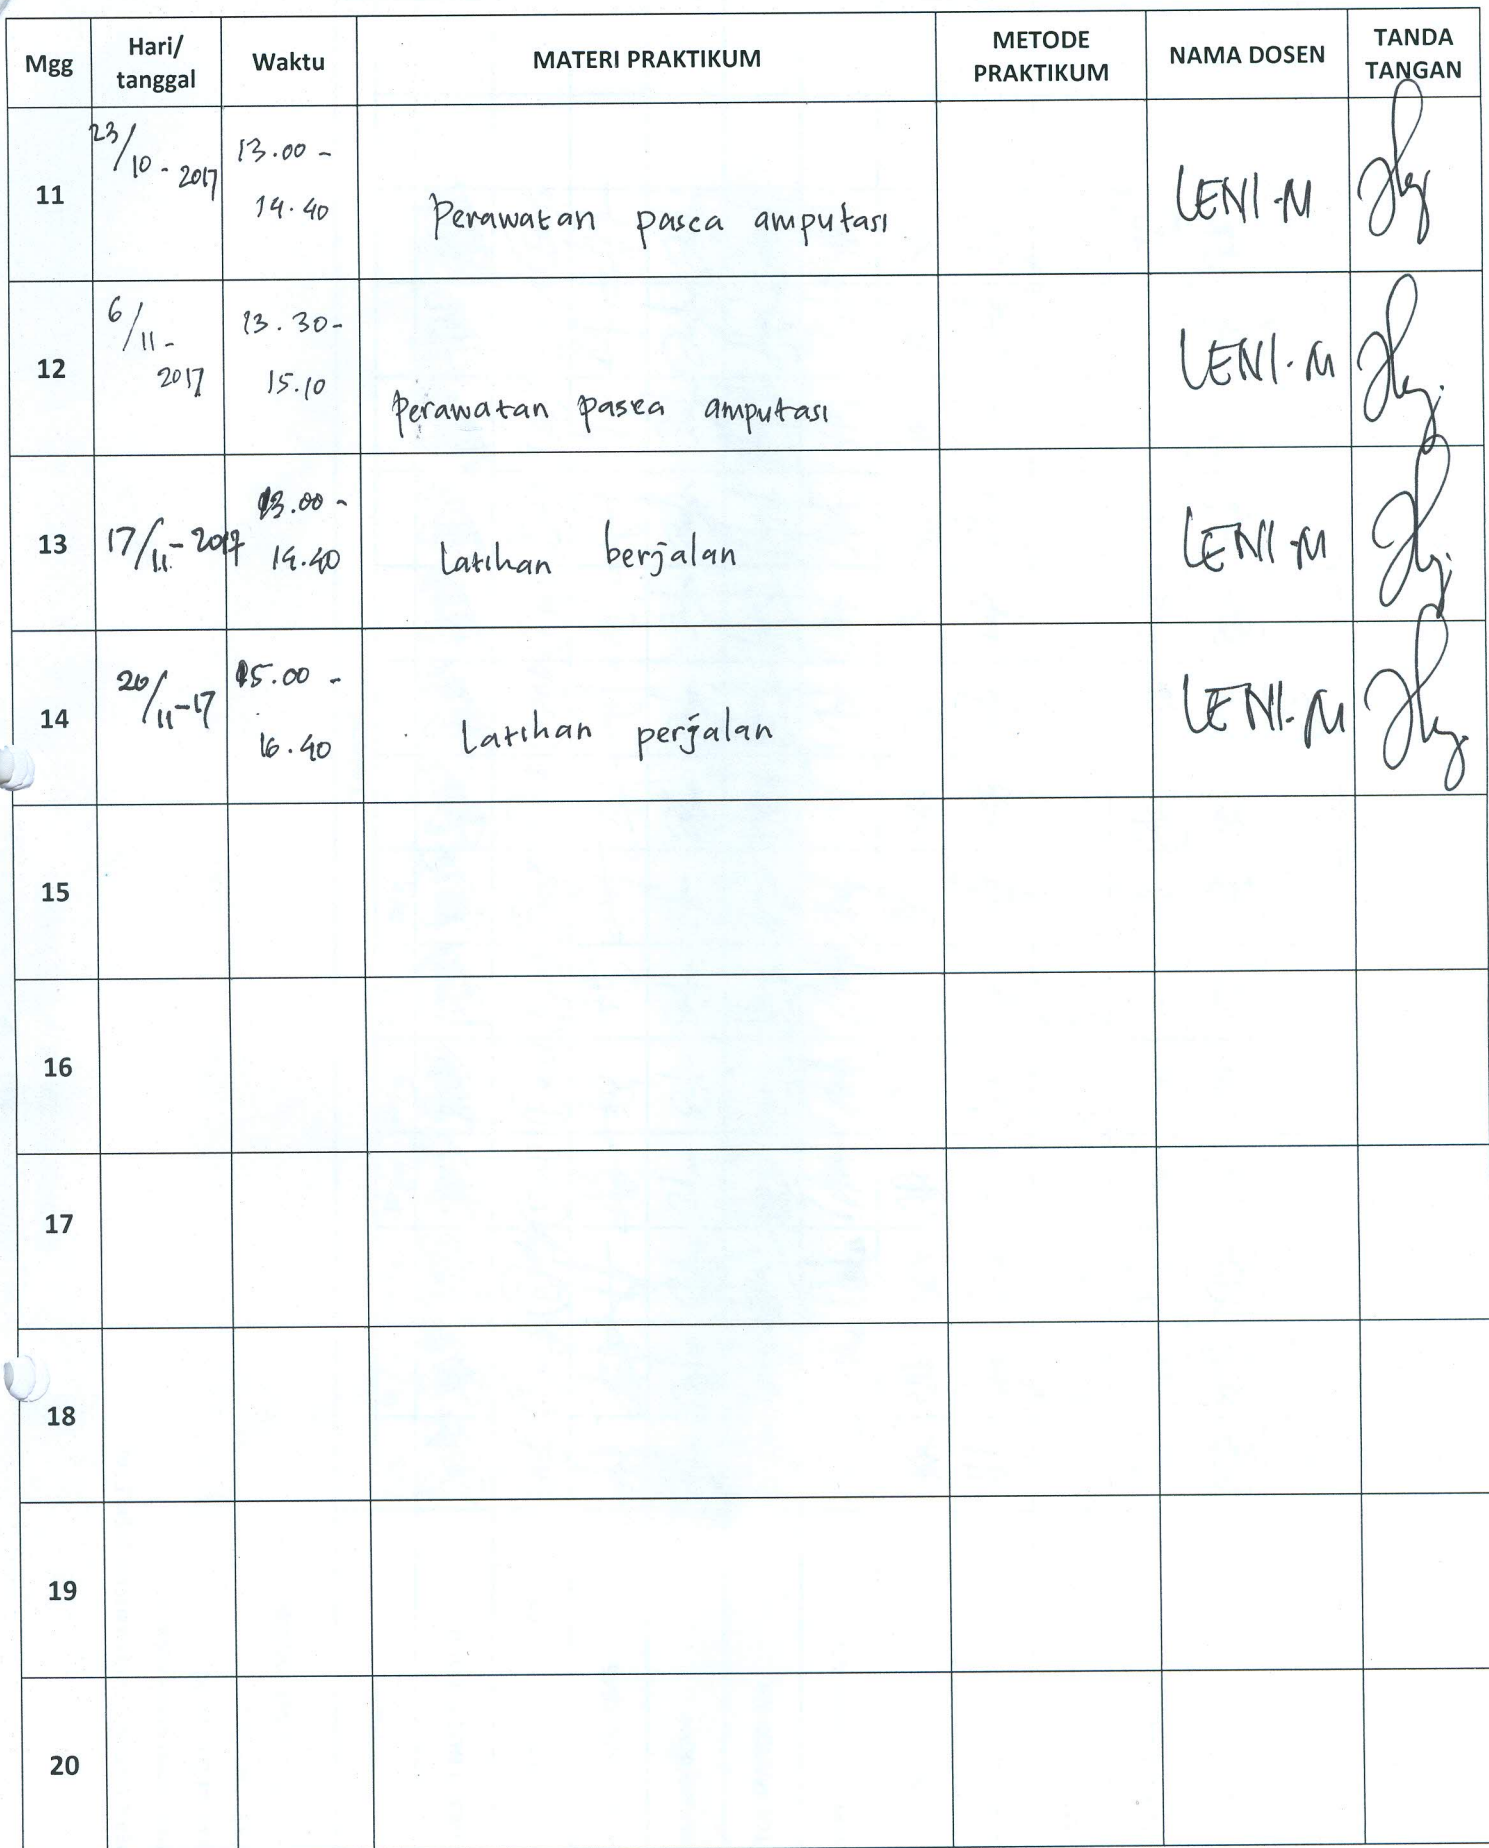 Mgg Hari/ tanggal Waktu MATERI PRAKTIKUM METODE PRAKTIKUM NAMA DOSEN TANDA TANGAN
11 23/10 - 2017 13.00 - 14.40 Perawatan pasca amputasi LENI-M
12 6/11 - 2017 13.30 - 15.10 Perawatan pasca amputasi LENI-M
13 17/11 - 2017 13.00 - 14.40 Latihan berjalan LENI-M
14 20/11-17 15.00 - 16.40 Latihan perjalan LENI-M
15
16
17
18
19
20